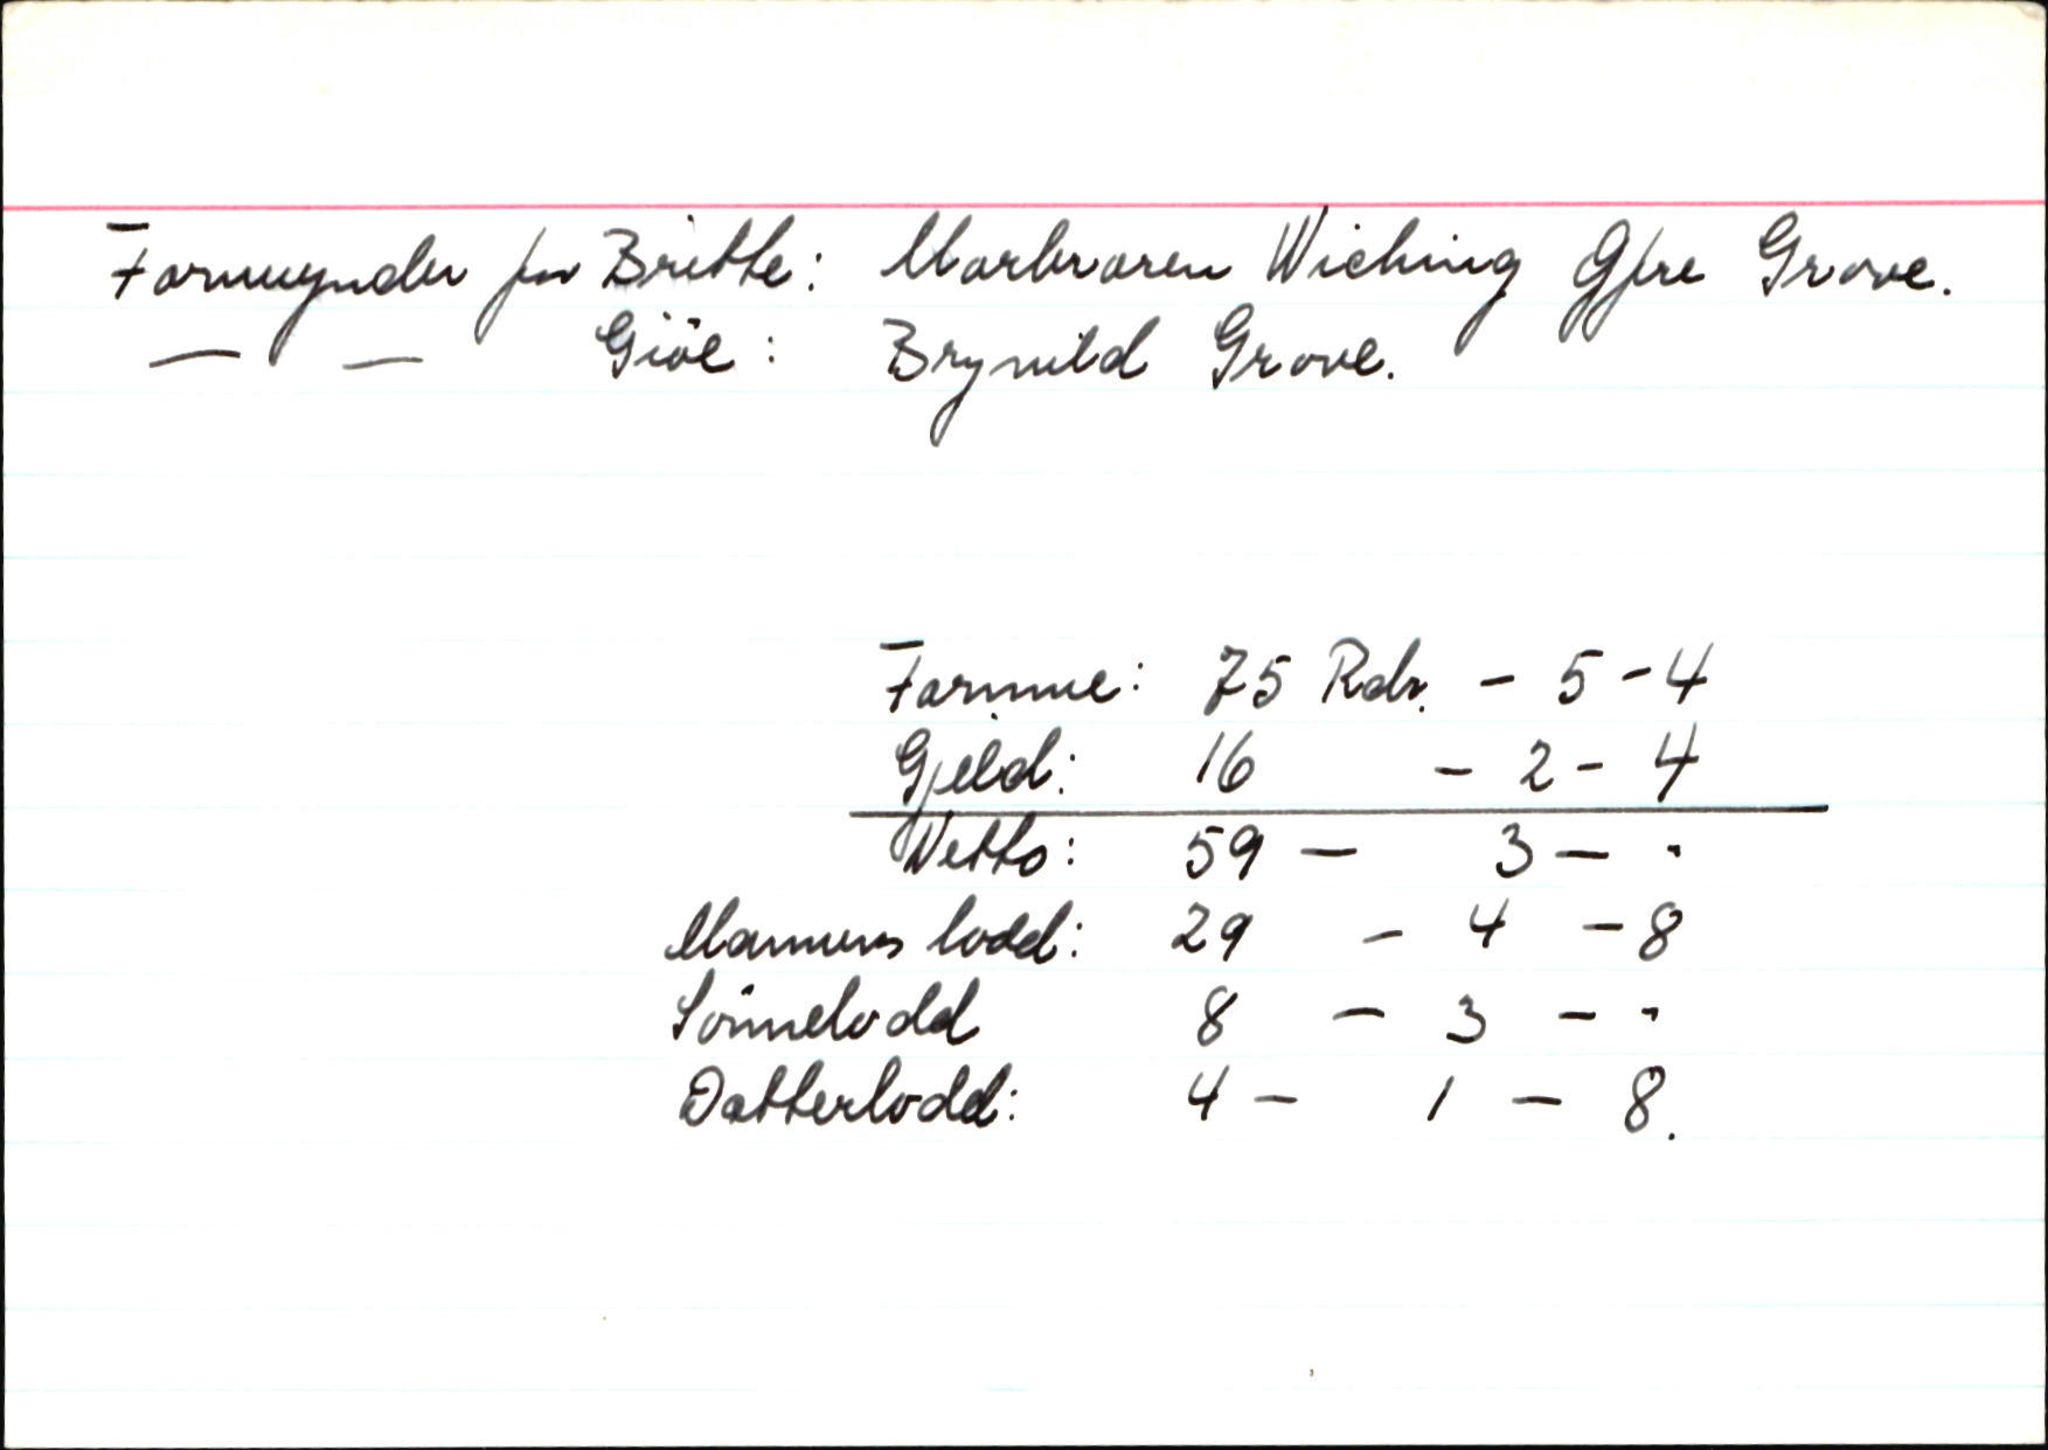 Formynder for Britte: Morbroren Wiching Gfre Grove.
— — Giöe: Brynild Grove.
Formue: 75 Rdr. - 5 - 4
Gjeld: 16 - 2 - 4
Netto: 59 - 3 - .
Mannens lodd: 29 - 4 - 8
Sönnelodd 8 - 3 - .
Datterlodd: 4 - 1 - 8.